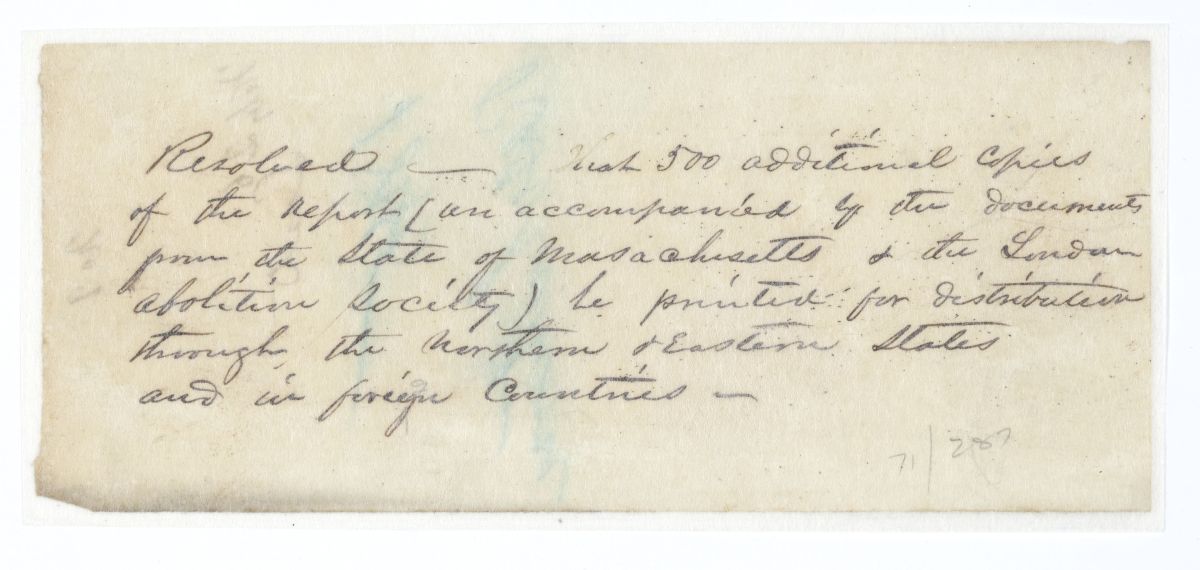 Resolved — that 500 additional Copies
of the Report (un accompanied by the documents
from the State of Massachusetts & the London
abolition Society) be printed for distribution
through the Northern & Eastern States
and in foreign Countries —
71/287